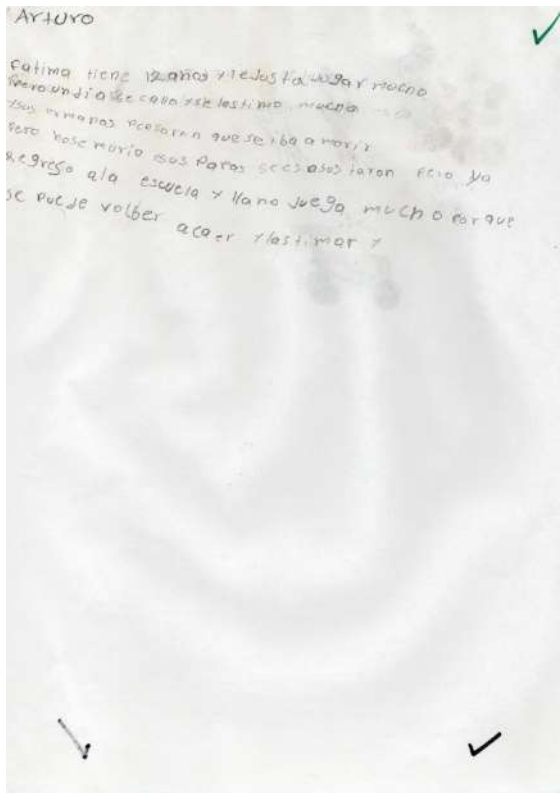 Arturo
Fatima tiene 12 años y le justa jugar mucho
pero un dia se callo y se lastimo mucho
y sus ermanas pensaron que se iba a morir
pero no se murio sus papas se asustaron pero ya
regreso ala escuela y llano juega mucho porque
se puede volber acaer y lastimar y